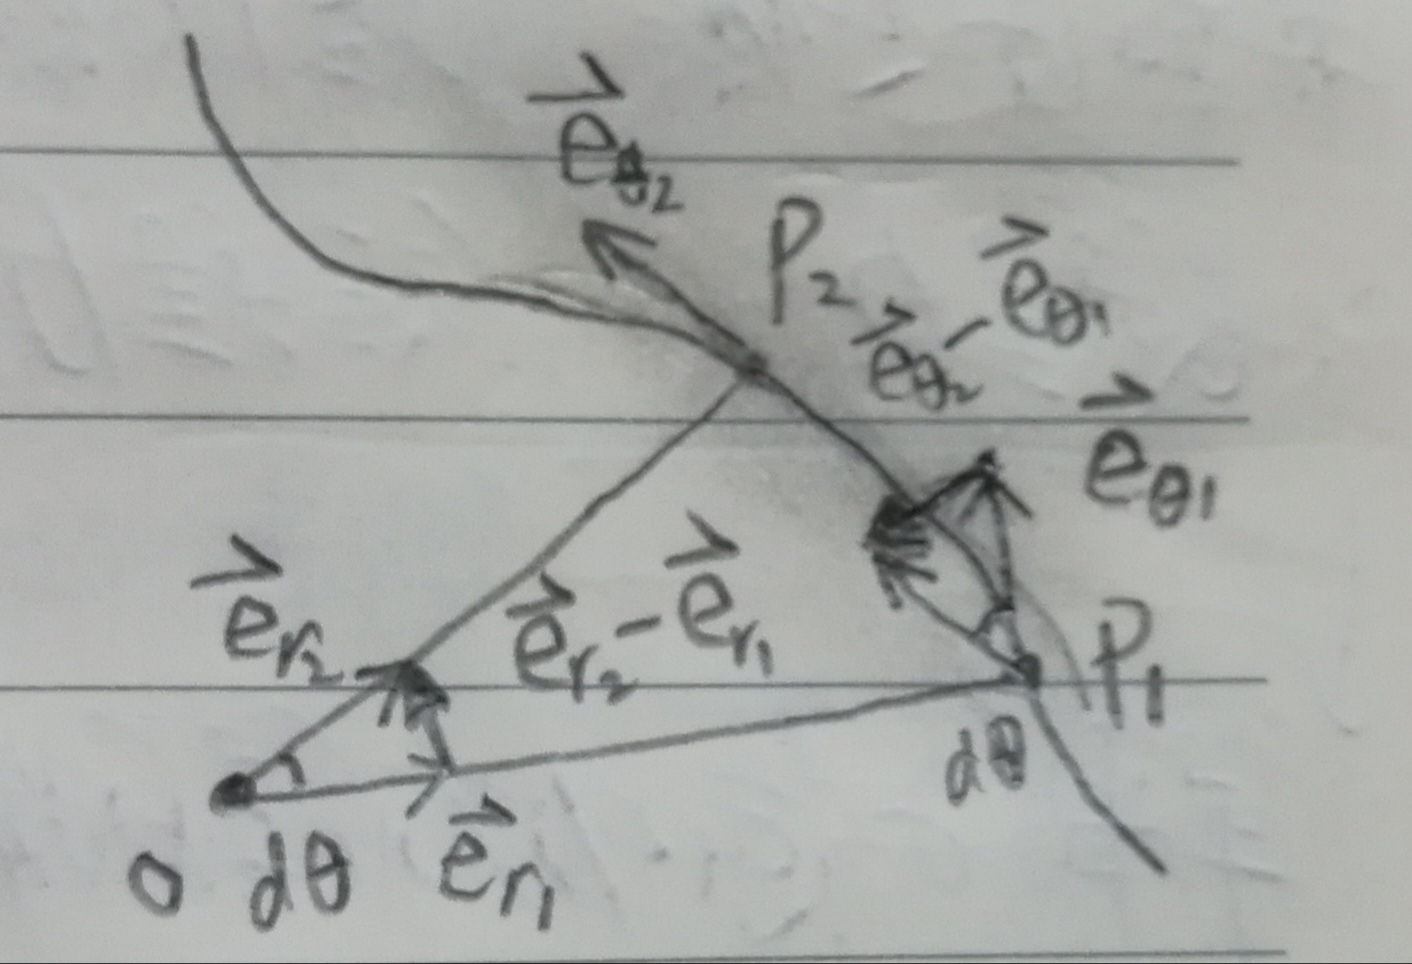 e⃗θ2
P2
e⃗θ2 - e⃗θ1
e⃗θ1
e⃗r2
e⃗r2 - e⃗r1
P1
dθ
O
dθ
e⃗r1